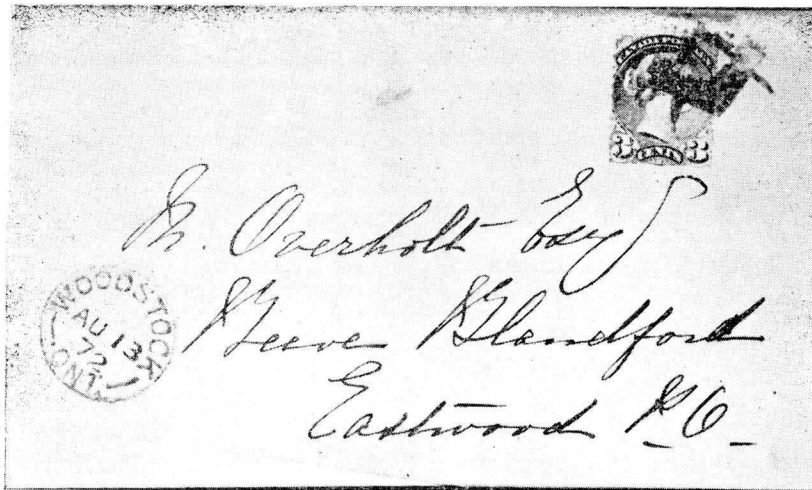 CANADA POSTAGE
3 CENTS 3
M. Overholt Esq
Reeve Blandford
Eastwood P.O.
WOODSTOCK
AU 13
72
ONT